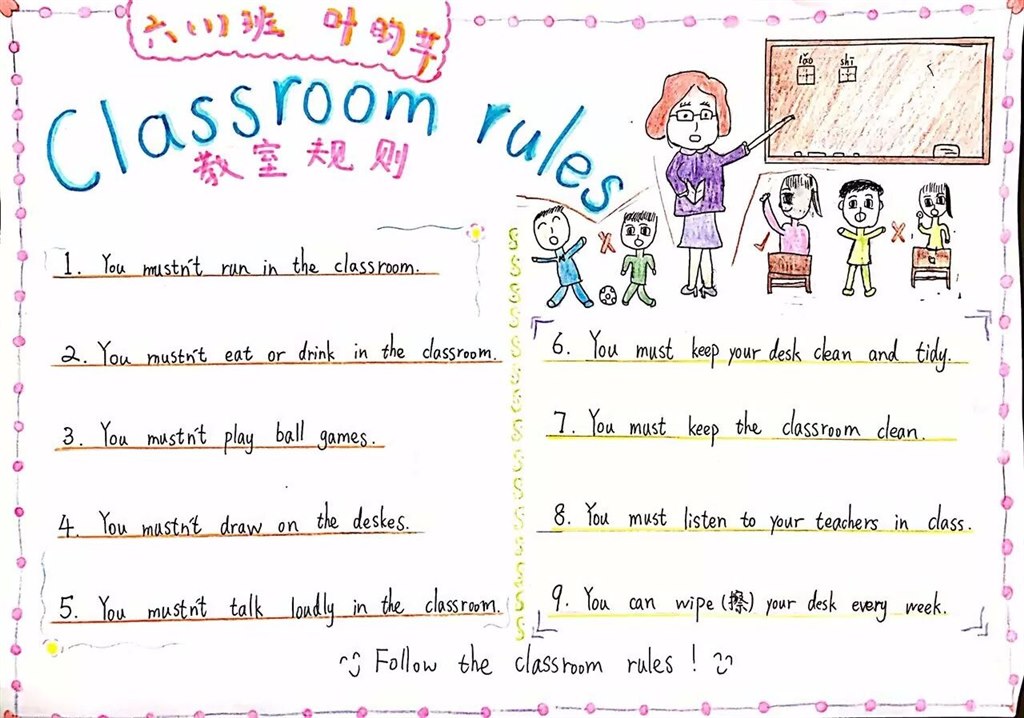 六(1)班 叶芊
Classroom rules
教室规则
lǎo shī
1. You mustn't run in the classroom.
2. You mustn't eat or drink in the classroom.
3. You mustn't play ball games.
4. You mustn't draw on the deskes.
5. You mustn't talk loudly in the classroom.
6. You must keep your desk clean and tidy.
7. You must keep the classroom clean.
8. You must listen to your teachers in class.
9. You can wipe (擦) your desk every week.
Follow the classroom rules !